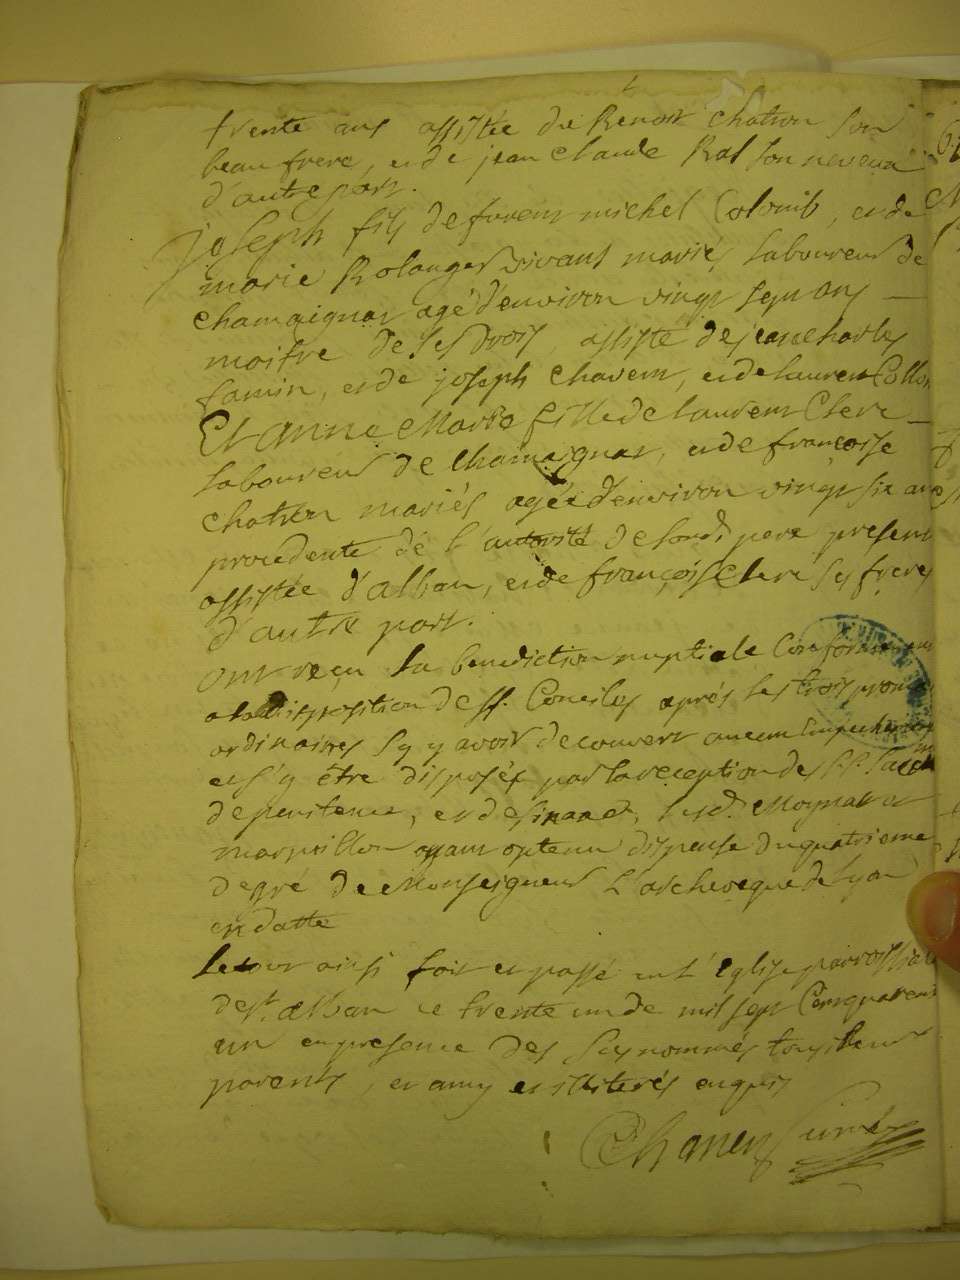 trente ans assistée de Benoit Chatron son
beau frere, et de jean claude Rat son neveu
d'autre part.
joseph fils de feu michel Colomb, et de
marie vivant mariés, laboureur de
chamaignar agé d'environ vingt sept ans
maitre de ses droits, assisté de jean charles
famin, et de joseph chavent, et de laurent
Et Anne Marie fille de laurent Clerc
laboureur de chamaignar, et de françoise
chatron mariés agée d'environ vingt six ans
procedente de l'autorité de sondi pere present
assistée d'alban, et de françois Clerc ses freres
d'autre part.
ont reçu la benediction nuptiale
a la disposition des ss. Conciles après les trois
ordinaires s'y avoir decouvert aucun
et s'y être disposés par la reception des SS.
de penitence, et de lesd. Moynat et
marpillon ayant optenu dispense du quatrieme
degré de Monseigneur L'archeveque de Lyon
en datte
Le tout ainsi fait et passé en L'Eglise parroissiale
de st. alban ce trente un de mil sept Cens quarente
un en presence des susnommés tous leurs
parents, et amy et illiterés enquis